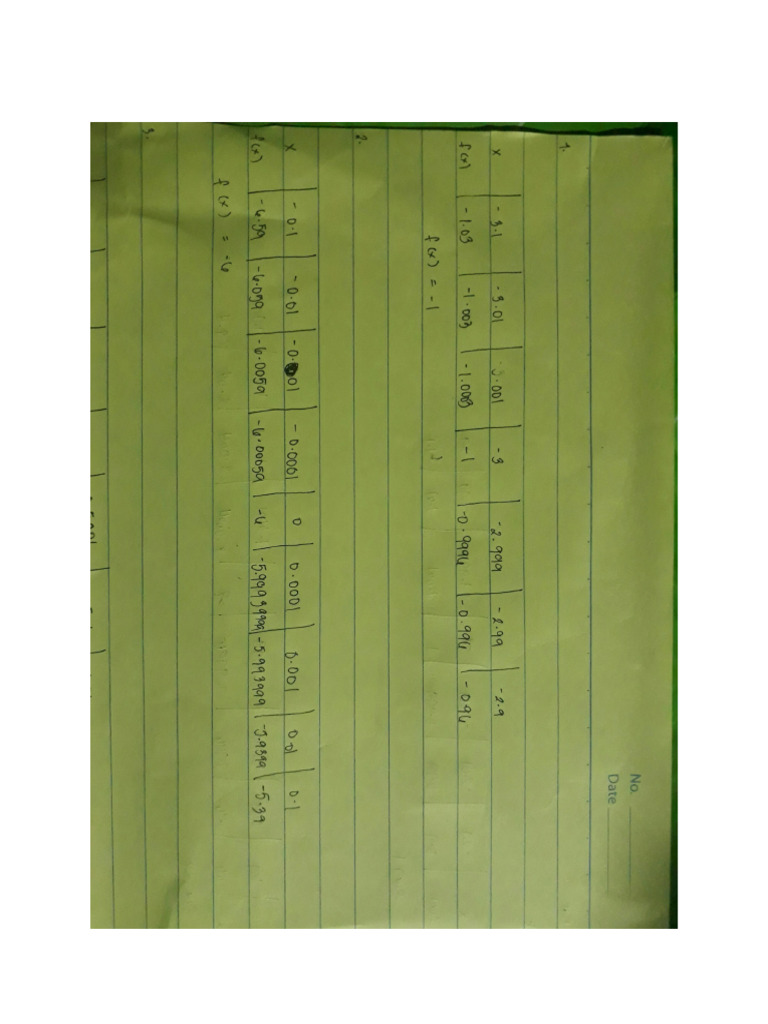 No.
Date
1.
x | -3.1 | -3.01 | -3.001 | -3 | -2.999 | -2.99 | -2.9
f(x) | -1.03 | -1.003 | -1.0003 | -1 | -0.9996 | -0.996 | -0.96
f(x) = -1
2.
x | -0.1 | -0.01 | -0.001 | -0.0001 | 0 | 0.0001 | 0.001 | 0.01 | 0.1
f(x) | -6.59 | -6.059 | -6.0059 | -6.00059 | -6 | | -5.993999 | | -5.39
f(x) = -6
3.